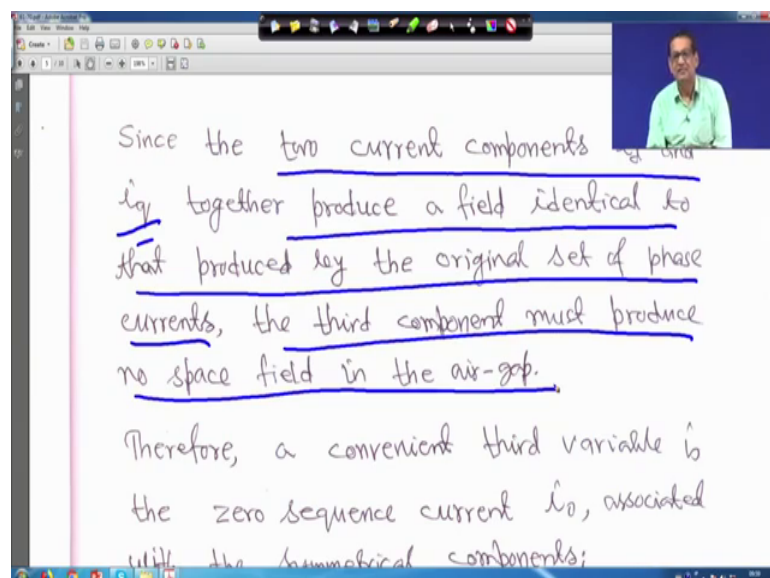 File Edit View Window Help
Create
Since the two current components and
iq together produce a field identical to
that produced by the original set of phase
currents, the third component must produce
no space field in the air-gap.
Therefore, a convenient third variable is
the zero sequence current i0, associated
with the symmetrical components;